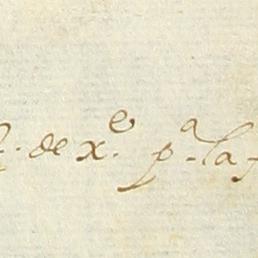 de xᵉ. pᵃ. la